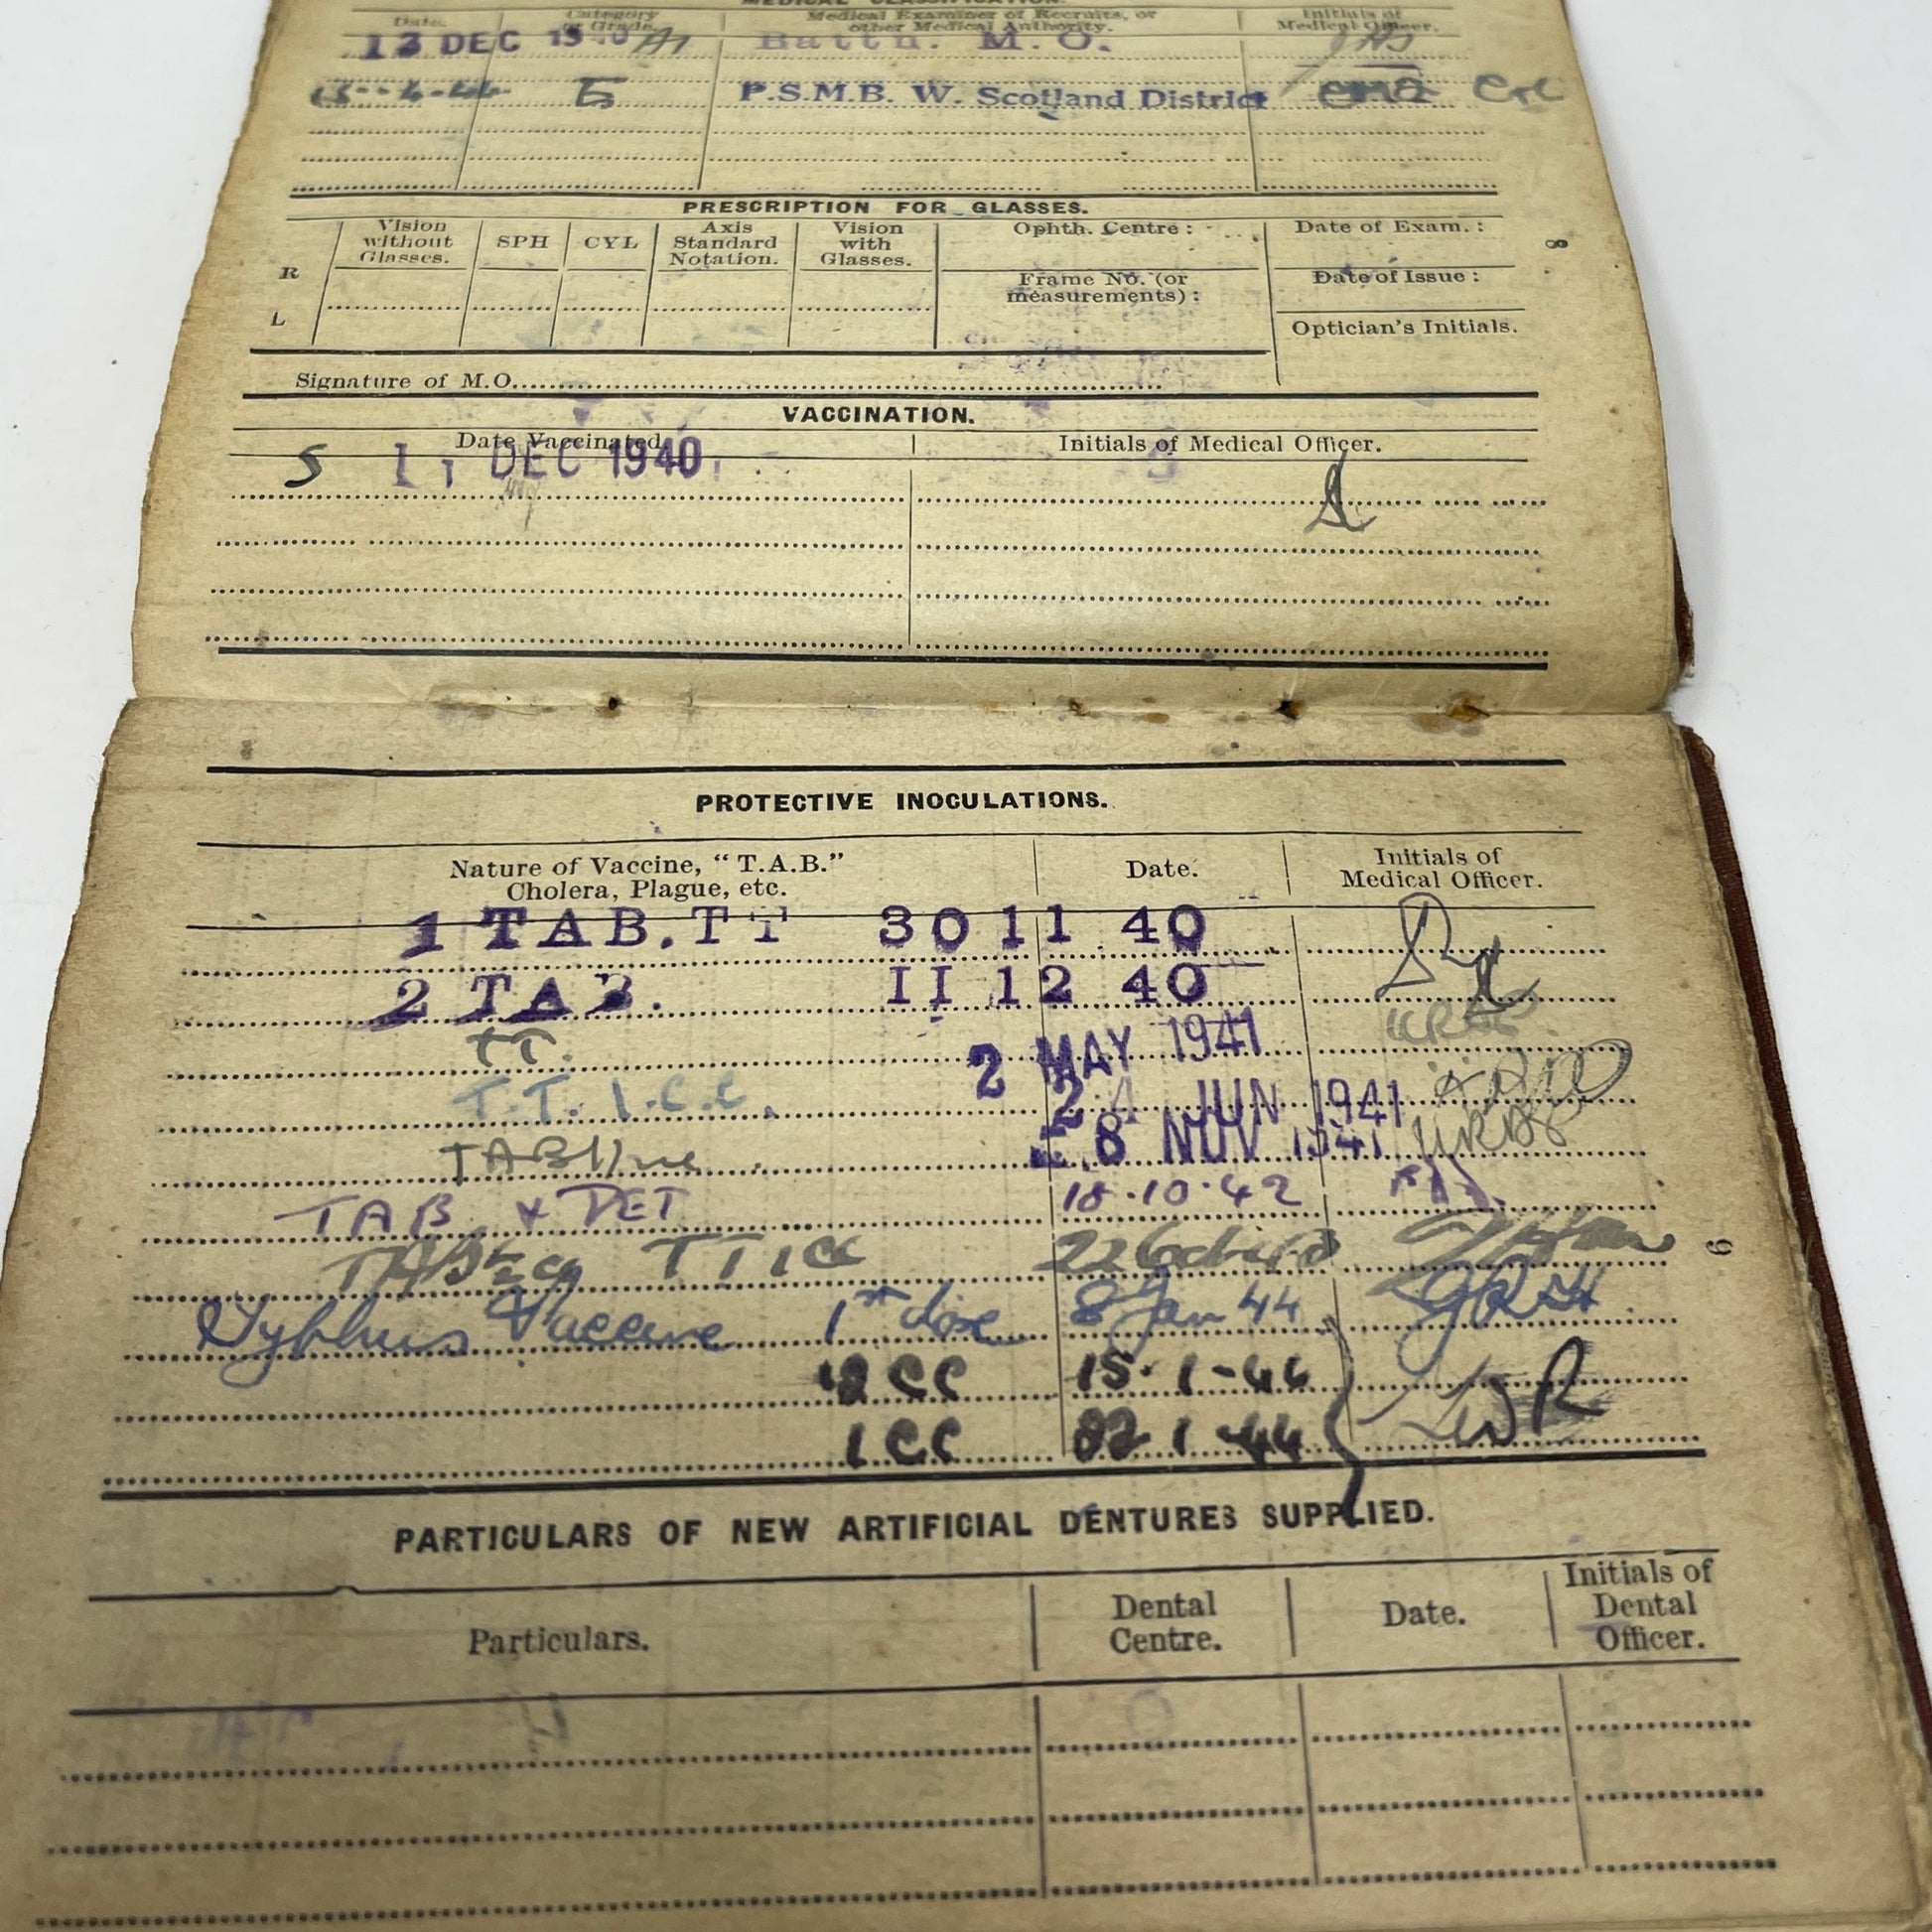 MEDICAL CLASSIFICATION.
Date. Category or Grade. Medical Examiner of Recruits, or other Medical Authority. Initials of Medical Officer.
13 DEC 1940 A1 Battn. M.O.
E P.S.M.B. W. Scotland District
PRESCRIPTION FOR GLASSES.
Vision without Glasses. SPH CYL Axis Standard Notation. Vision with Glasses. Ophth. Centre: Date of Exam.:
R Frame No. (or measurements): Date of Issue:
L Optician's Initials.
Signature of M.O.
8
VACCINATION.
Date Vaccinated. Initials of Medical Officer.
S 11 DEC 1940
PROTECTIVE INOCULATIONS.
Nature of Vaccine, "T.A.B." Cholera, Plague, etc. Date. Initials of Medical Officer.
1 TAB.TT 30 11 40
2 TAB. II 12 40
TT. 2 MAY 1941
T.T. 1.C.C. 24 JUN 1941
TAB 28 NOV 1941
TAB & DET 18.10.42
TAB TT 1CC
Typhus Vaccine 1st dose 8 Jan 44 GRH
CC 15-1-44
1 CC 22-1-44 LWR
9
PARTICULARS OF NEW ARTIFICIAL DENTURES SUPPLIED.
Particulars. Dental Centre. Date. Initials of Dental Officer.